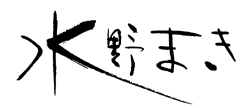 水野まき